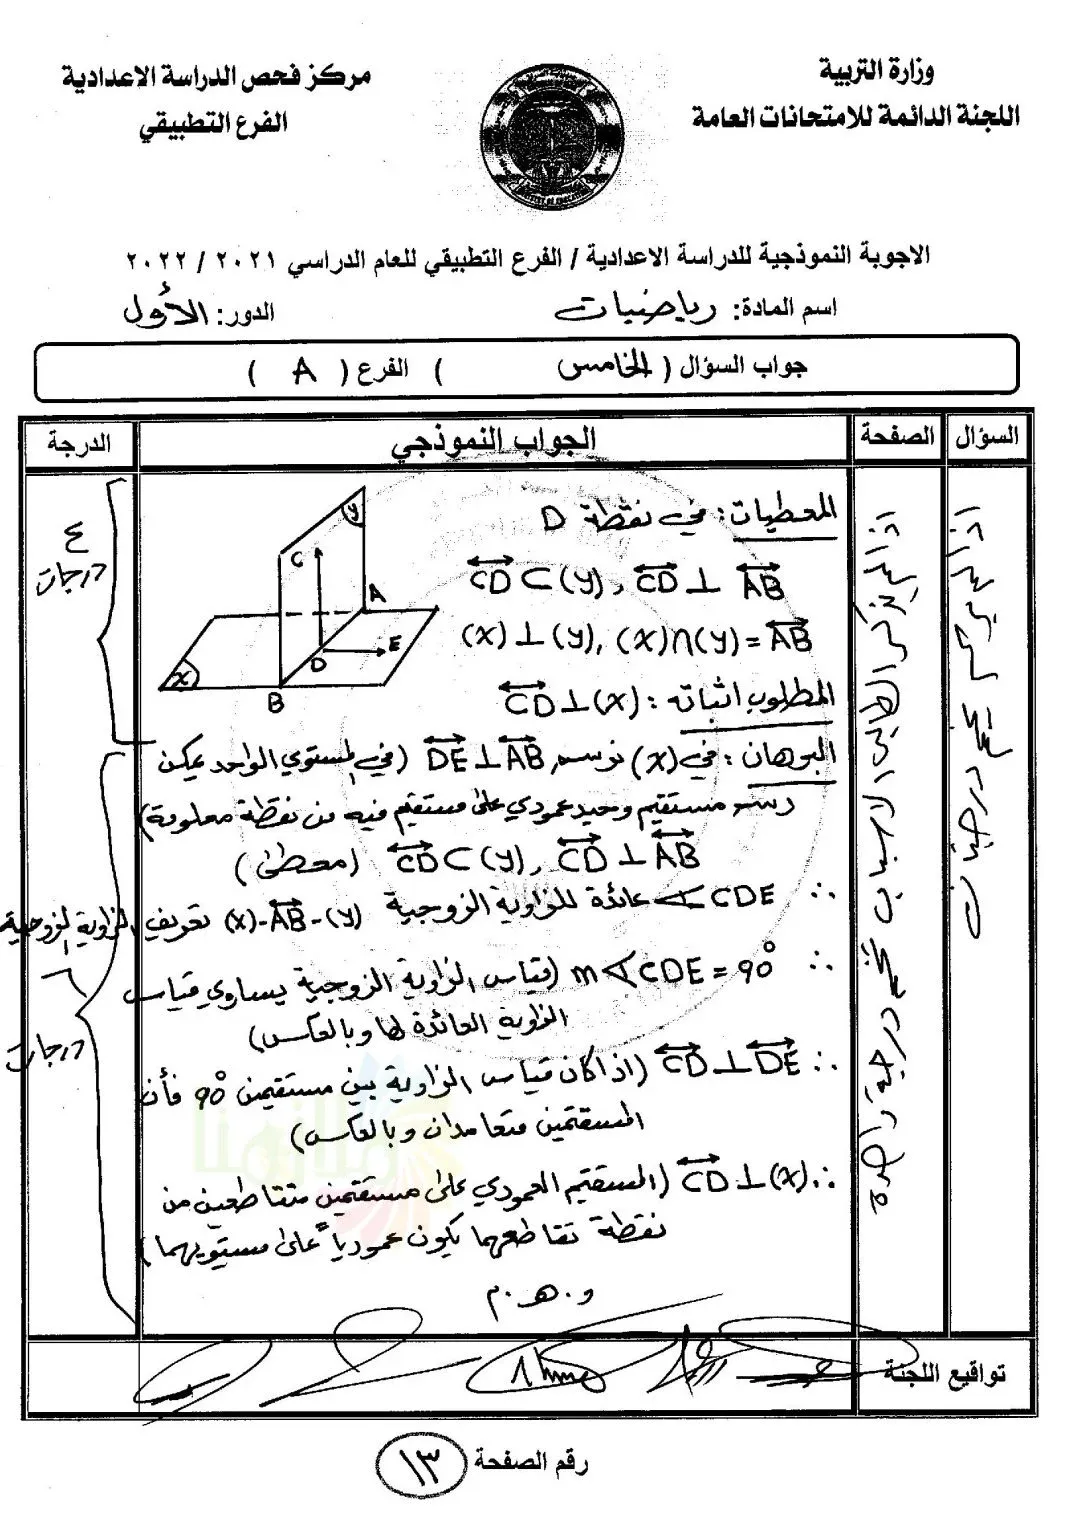 وزارة التربية
اللجنة الدائمة للامتحانات العامة
مركز فحص الدراسة الاعدادية
الفرع التطبيقي
الاجوبة النموذجية للدراسة الاعدادية / الفرع التطبيقي للعام الدراسي ٢٠٢١ / ٢٠٢٢
اسم المادة: رياضيات الدور: الأول
جواب السؤال ( الخامس ) الفرع ( A )
السؤال الصفحة الجواب النموذجي الدرجة
المعطيات: في نقطة D
CD ⊂ (y), CD ⊥ AB
(x) ⊥ (y), (x)∩(y) = AB
المطلوب اثباته: CD ⊥ (x)
البرهان: في (x) نرسم DE ⊥ AB (في المستوي الواحد يمكن
رسم مستقيم وحيد عمودي على مستقيم فيه من نقطة معلومة)
CD ⊂ (y), CD ⊥ AB (معطى)
∴ ∢CDE عائدة للزاوية الزوجية (y)-AB-(x) تعريف الزاوية الزوجية
∴ m∢CDE = 90° (قياس الزاوية الزوجية يساوي قياس
الزاوية العائدة لها وبالعكس)
∴ CD ⊥ DE (اذا كان قياس الزاوية بين مستقيمين 90° فأن
المستقيمين متعامدان وبالعكس)
∴ CD ⊥ (x) (المستقيم العمودي على مستقيمين متقاطعين من
نقطة تقاطعهما يكون عمودياً على مستويهما)
و.هـ.م
y
C
A
E
D
x
B
٤
درجات
٦
درجات
اذا لم يذكر الطالب الاسباب يخسر درجة واحدة
تواقيع اللجنة
رقم الصفحة ١٣